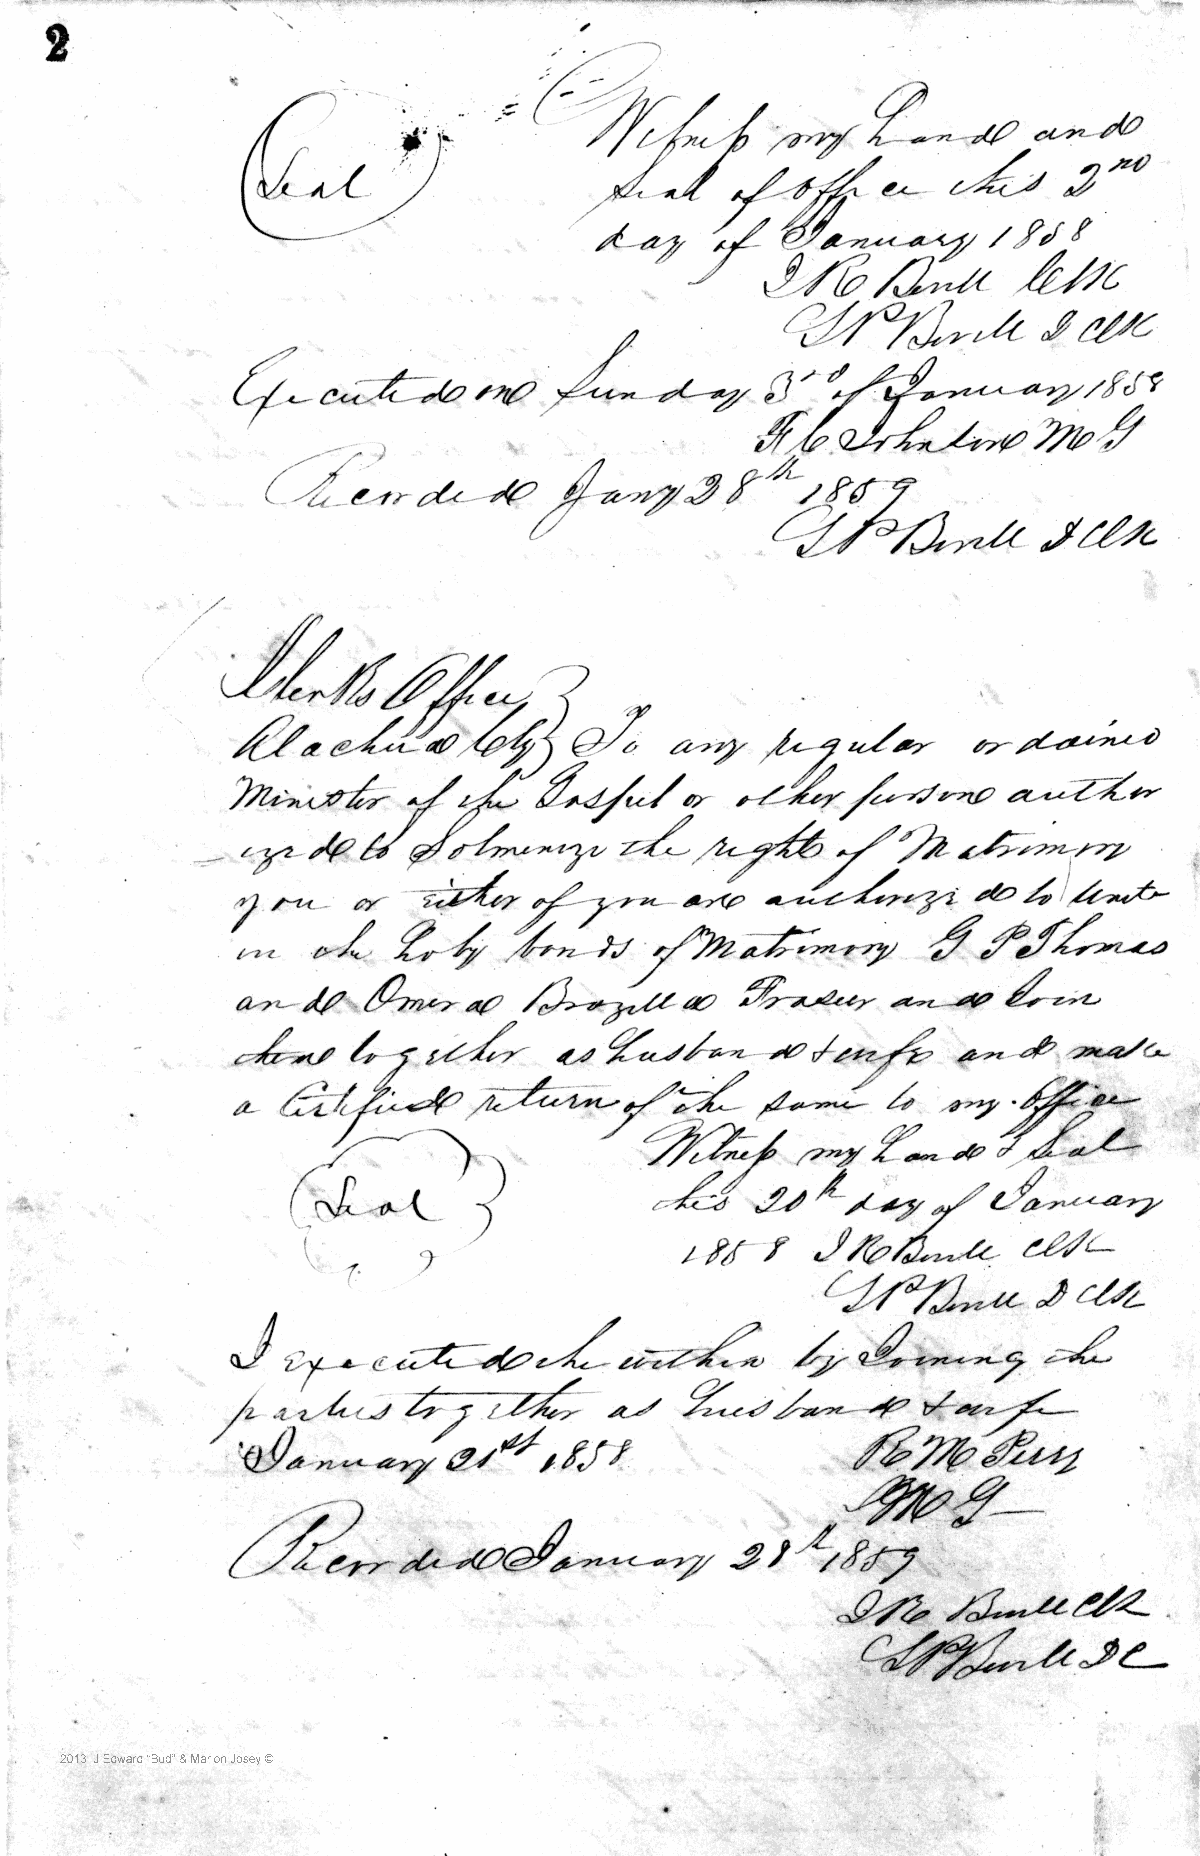 2
Witness my hand and
Seal
seal of office this 2nd
day of January 1858
Clk
S P D Clk
Executed on Sunday 3rd of January 1858
Johnston M G
Recorded Jany 28th 1859
S P D Clk
Clerks Office
Alachua Cty To any regular ordained
Minister of the Gospel or other person author
ized to Solmenize the right of Matrimony
you or either of you are authorized to unite
in the holy bonds of Matrimony G P Thomas
and Omera Brazilla Fraser and Join
them together as husband & wife and make
a Certified return of the same to my office
Witness my hand & Seal
Seal
this 20th day of January
1858 Clk
S P D Clk
I executed the within by Joining the
parties together as husband & wife
January 21st 1858 R M Perry
M G
Recorded January 28th 1859
Clk
S P D C
2013 J Edward "Bud" & Marion Josey ©